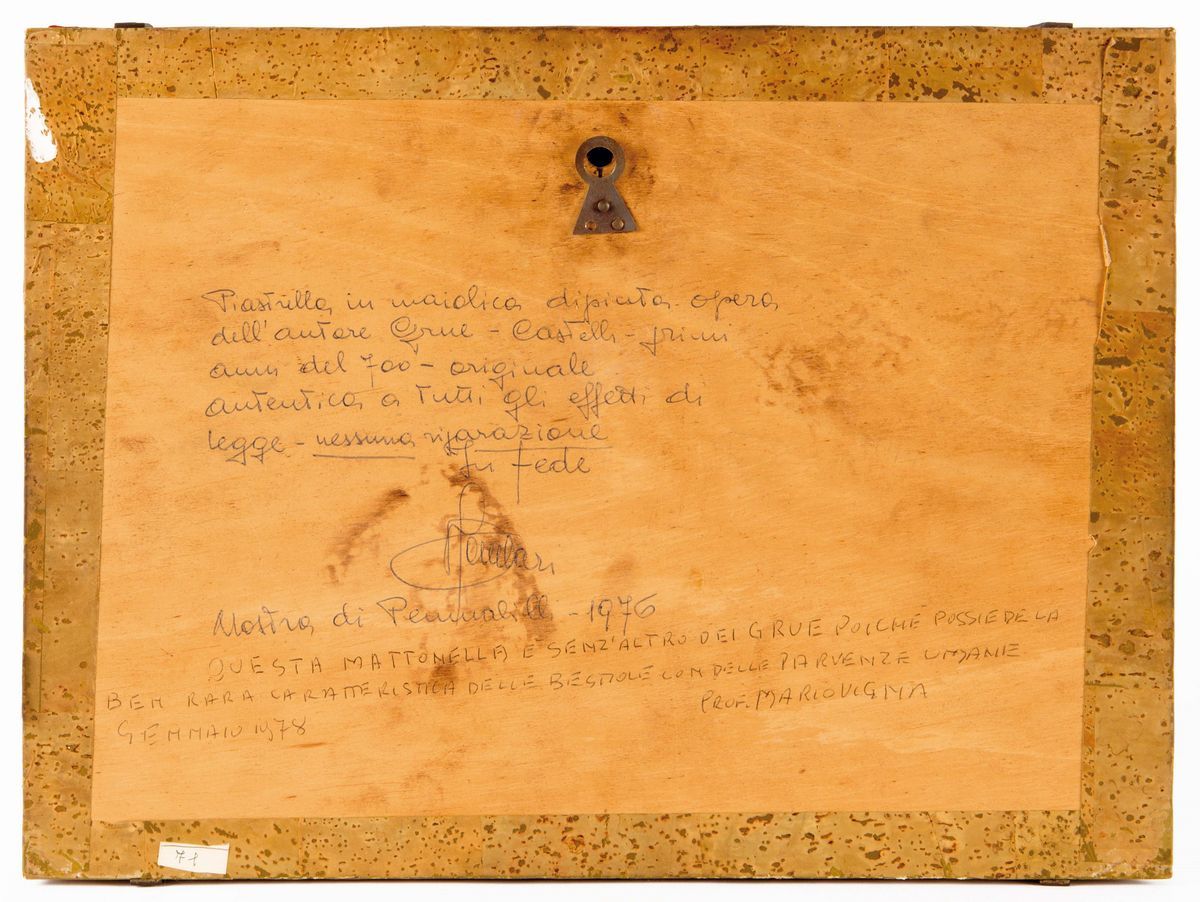 Piastrella in maiolica dipinta opera
dell'autore Grue - Castelli - primi
anni del 700 - originale
autentica a tutti gli effetti di
legge - nessuna riparazione
In fede
Mostra di Pennabilli - 1976
QUESTA MATTONELLA È SENZ'ALTRO DEI GRUE POICHÈ POSSIEDE LA
BEN RARA CARATTERISTICA DELLE BESTIOLE CON DELLE PARVENZE UMANE
PROF. MARIO VIGNA
GENNAIO 1978
71